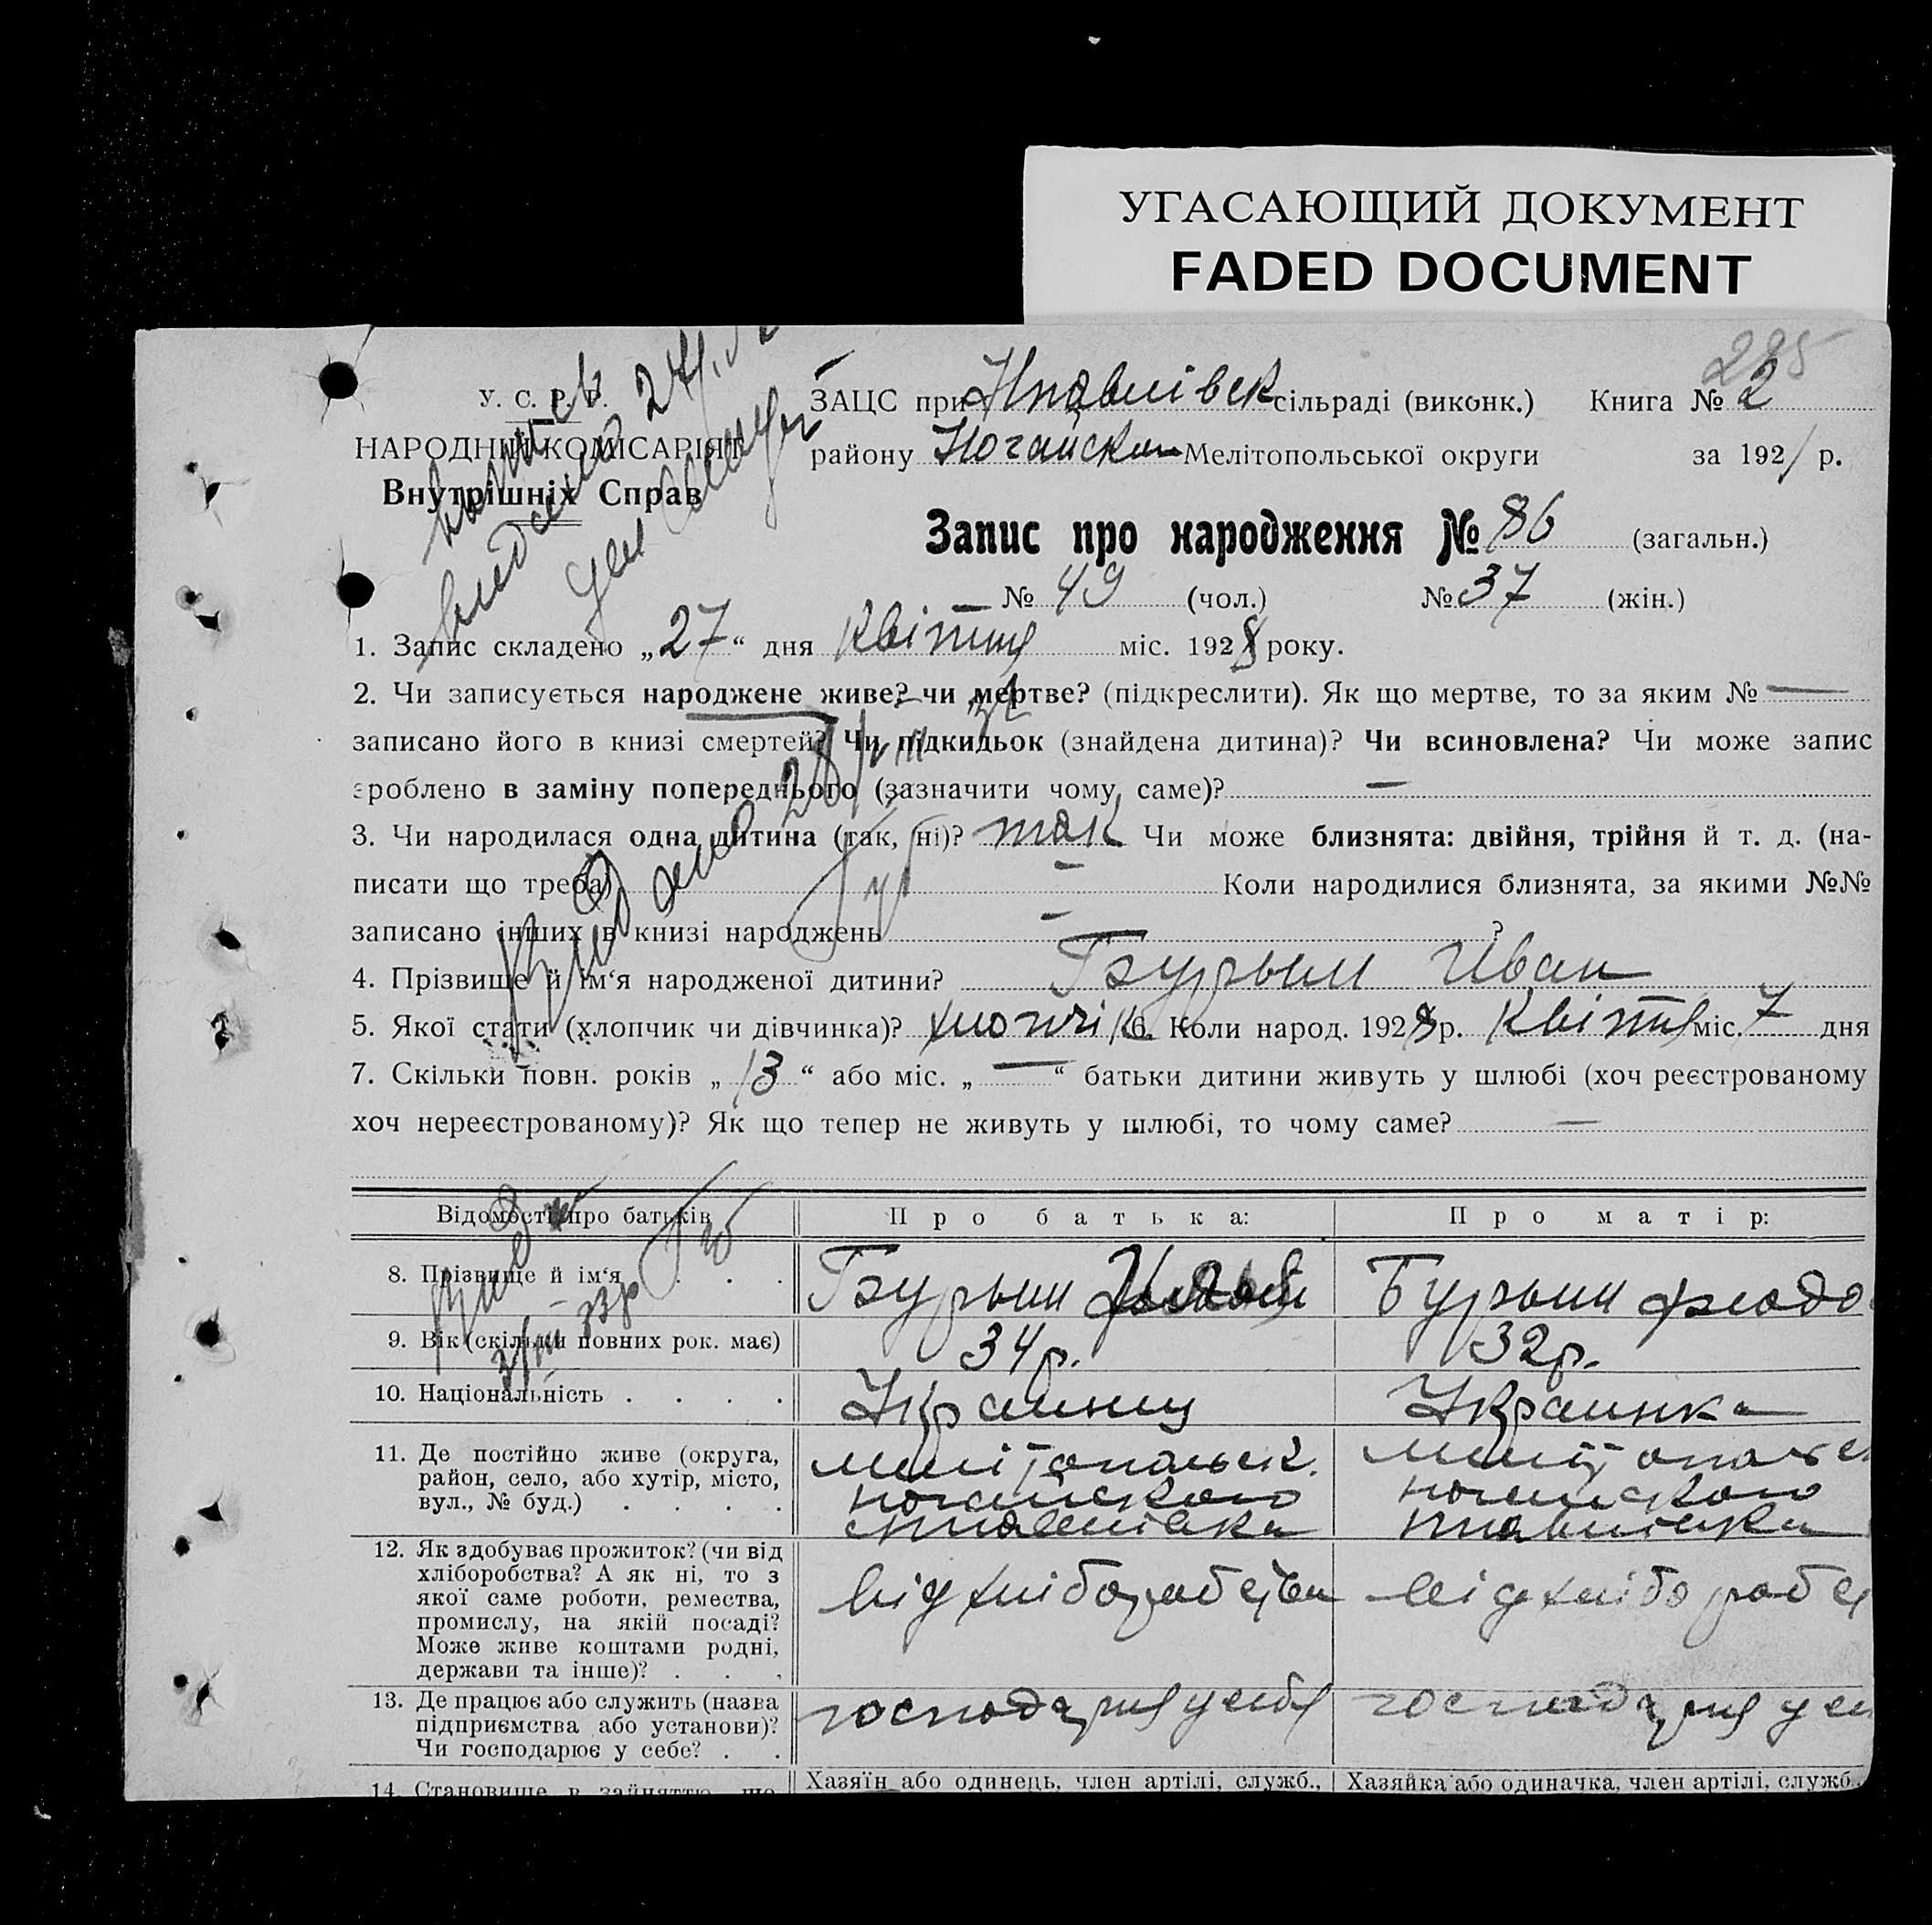 УГАСАЮЩИЙ ДОКУМЕНТ
FADED DOCUMENT
285
У. С. Р. Р.
НАРОДНІЙ КОМІСАРІЯТ
Внутрішніх Справ
ЗАЦС при сільраді (виконк.) Книга № 2
району Ногайском Мелітопольської округи за 192 р.
Запис про народження № 86 (загальн.)
№ 49 (чол.) № 37 (жін.)
1. Запис складено „27“ дня Квітня міс. 1928 року.
2. Чи записується народжене живе? чи мертве? (підкреслити). Як що мертве, то за яким № —
записано його в книзі смертей? Чи підкидьок (знайдена дитина)? Чи всиновлена? Чи може запис
зроблено в заміну попереднього (зазначити чому саме)? —
3. Чи народилася одна дитина (так, ні)? так Чи може близнята: двійня, трійня й т. д. (на-
писати що треба) — Коли народилися близнята, за якими №№
записано інших в книзі народжень — ?
4. Прізвище й ім‘я народженої дитини? Бурым Иван
5. Якої стати (хлопчик чи дівчинка)? хлопчік 6. Коли народ. 1928 р. Квітня міс. 7 дня
7. Скільки повн. років „13“ або міс. „—“ батьки дитини живуть у шлюбі (хоч реєстрованому
хоч нереєстрованому)? Як що тепер не живуть у шлюбі, то чому саме? —
Відомості про батьків Про батька: Про матір:
8. Прізвище й ім‘я . . . Бурым Бурым феодо
9. Вік (скільки повних рок. має) 34 р. 32 р.
10. Національність . . . . Украинец Украинка
11. Де постійно живе (округа,
район, село, або хутір, місто,
вул., № буд.) . . . .
мелітопольск.
ногайского
мелітопольс
ногайского
12. Як здобуває прожиток? (чи від
хліборобства? А як ні, то з
якої саме роботи, ремества,
промислу, на якій посаді?
Може живе коштами родні,
держави та інше)? . . .
від хліборобства
від хлібороб
13. Де працює або служить (назва
підприємства або установи)?
Чи господарює у себе? . .
господарня у себя
господарня у се
14. Становище в зайняттю, що
Хазяїн або одинець, член артілі, служб., Хазяйка або одиначка, член артілі, служб.